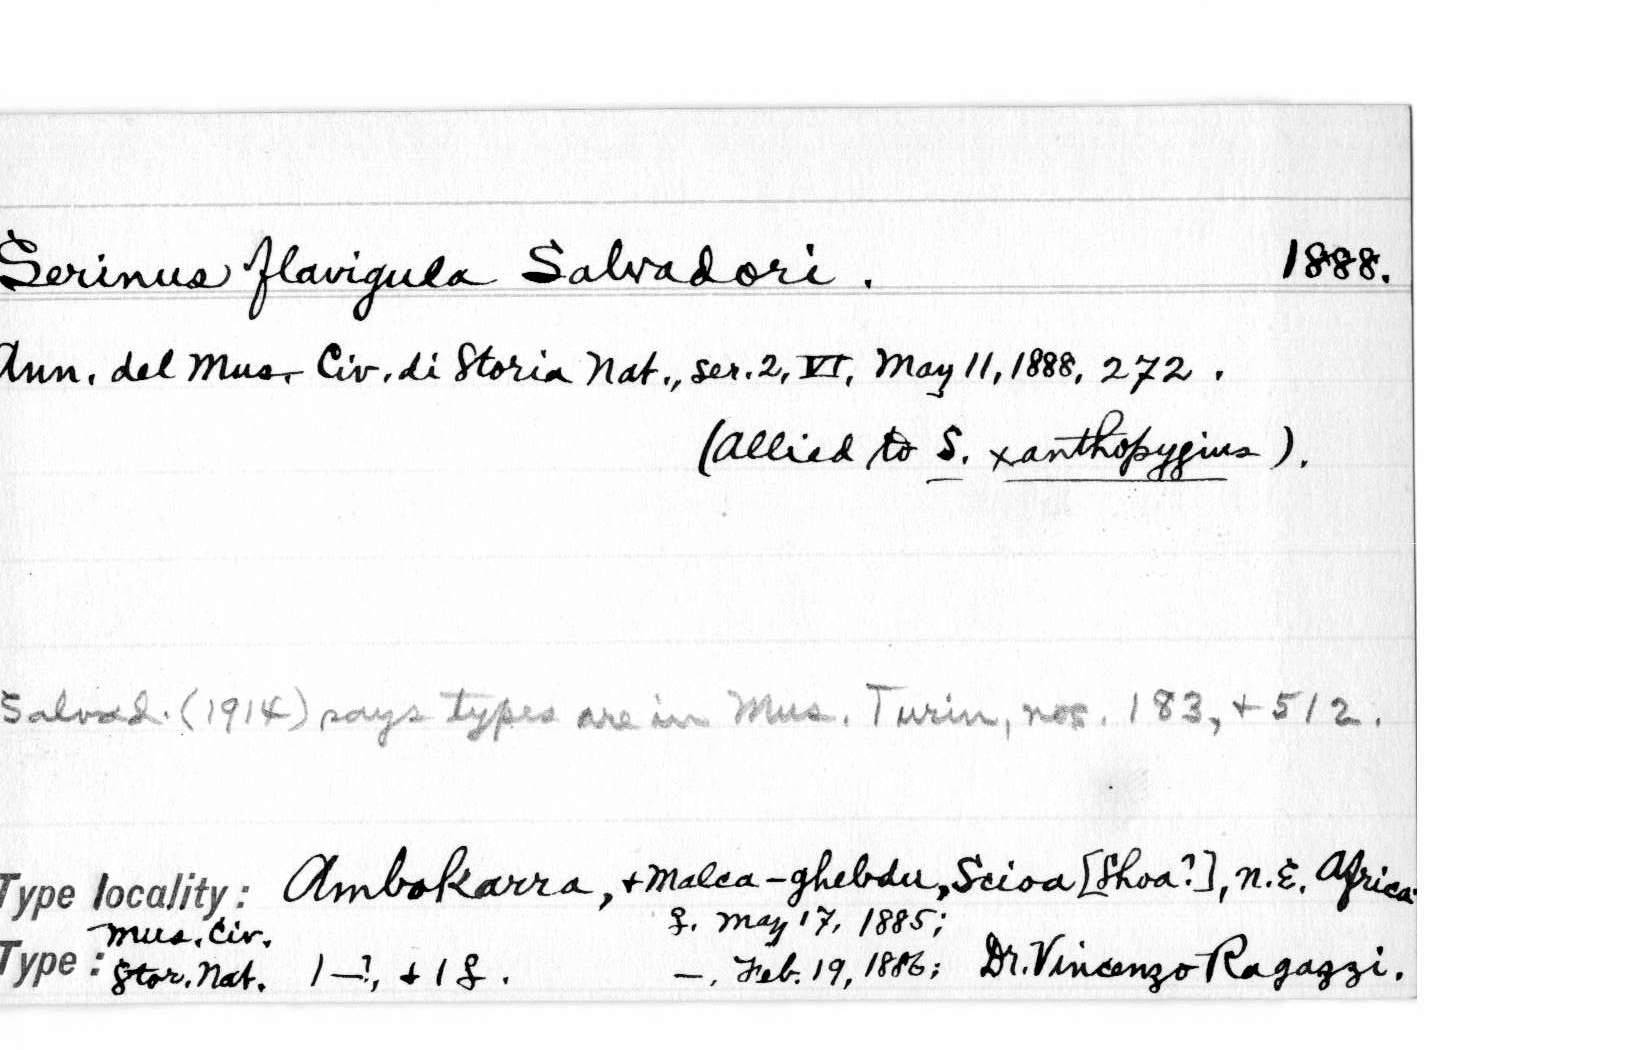 Serinus flavigula Salvadori. 1888.
Ann. del Mus. Civ. di Storia Nat., ser. 2, VI, May 11, 1888, 272.
(Allied to S. xanthopygius).
Salvad. (1914) says types are in Mus. Turin, nos. 183, + 512.
Type locality: Ambokarra, + Malca-ghebdu, Scioa [Shoa?], N.E. Africa
Mus. Civ. ♀. May 17, 1885;
Type: Stor. Nat. 1 —?, + 1 ♀. —, Feb. 19, 1886; Dr. Vincenzo Ragazzi.